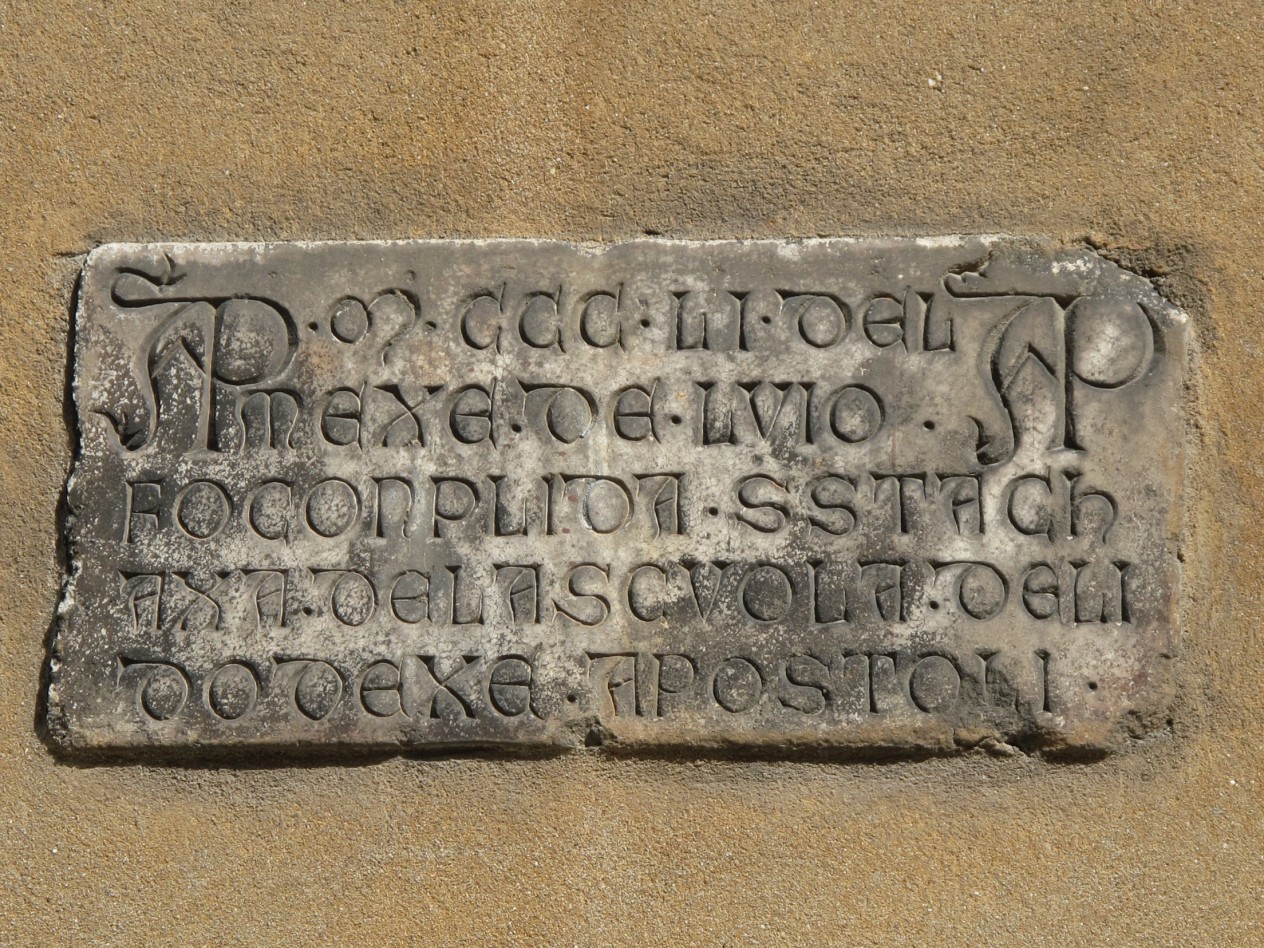 AP · M · CCC · LI · DEL AP
MEXE · DE · LVIO ·
FO CONPLIDA · SSTA CH
AXA · DELA SCVOLA · DELI
DODEXE · APOSTOLI ·